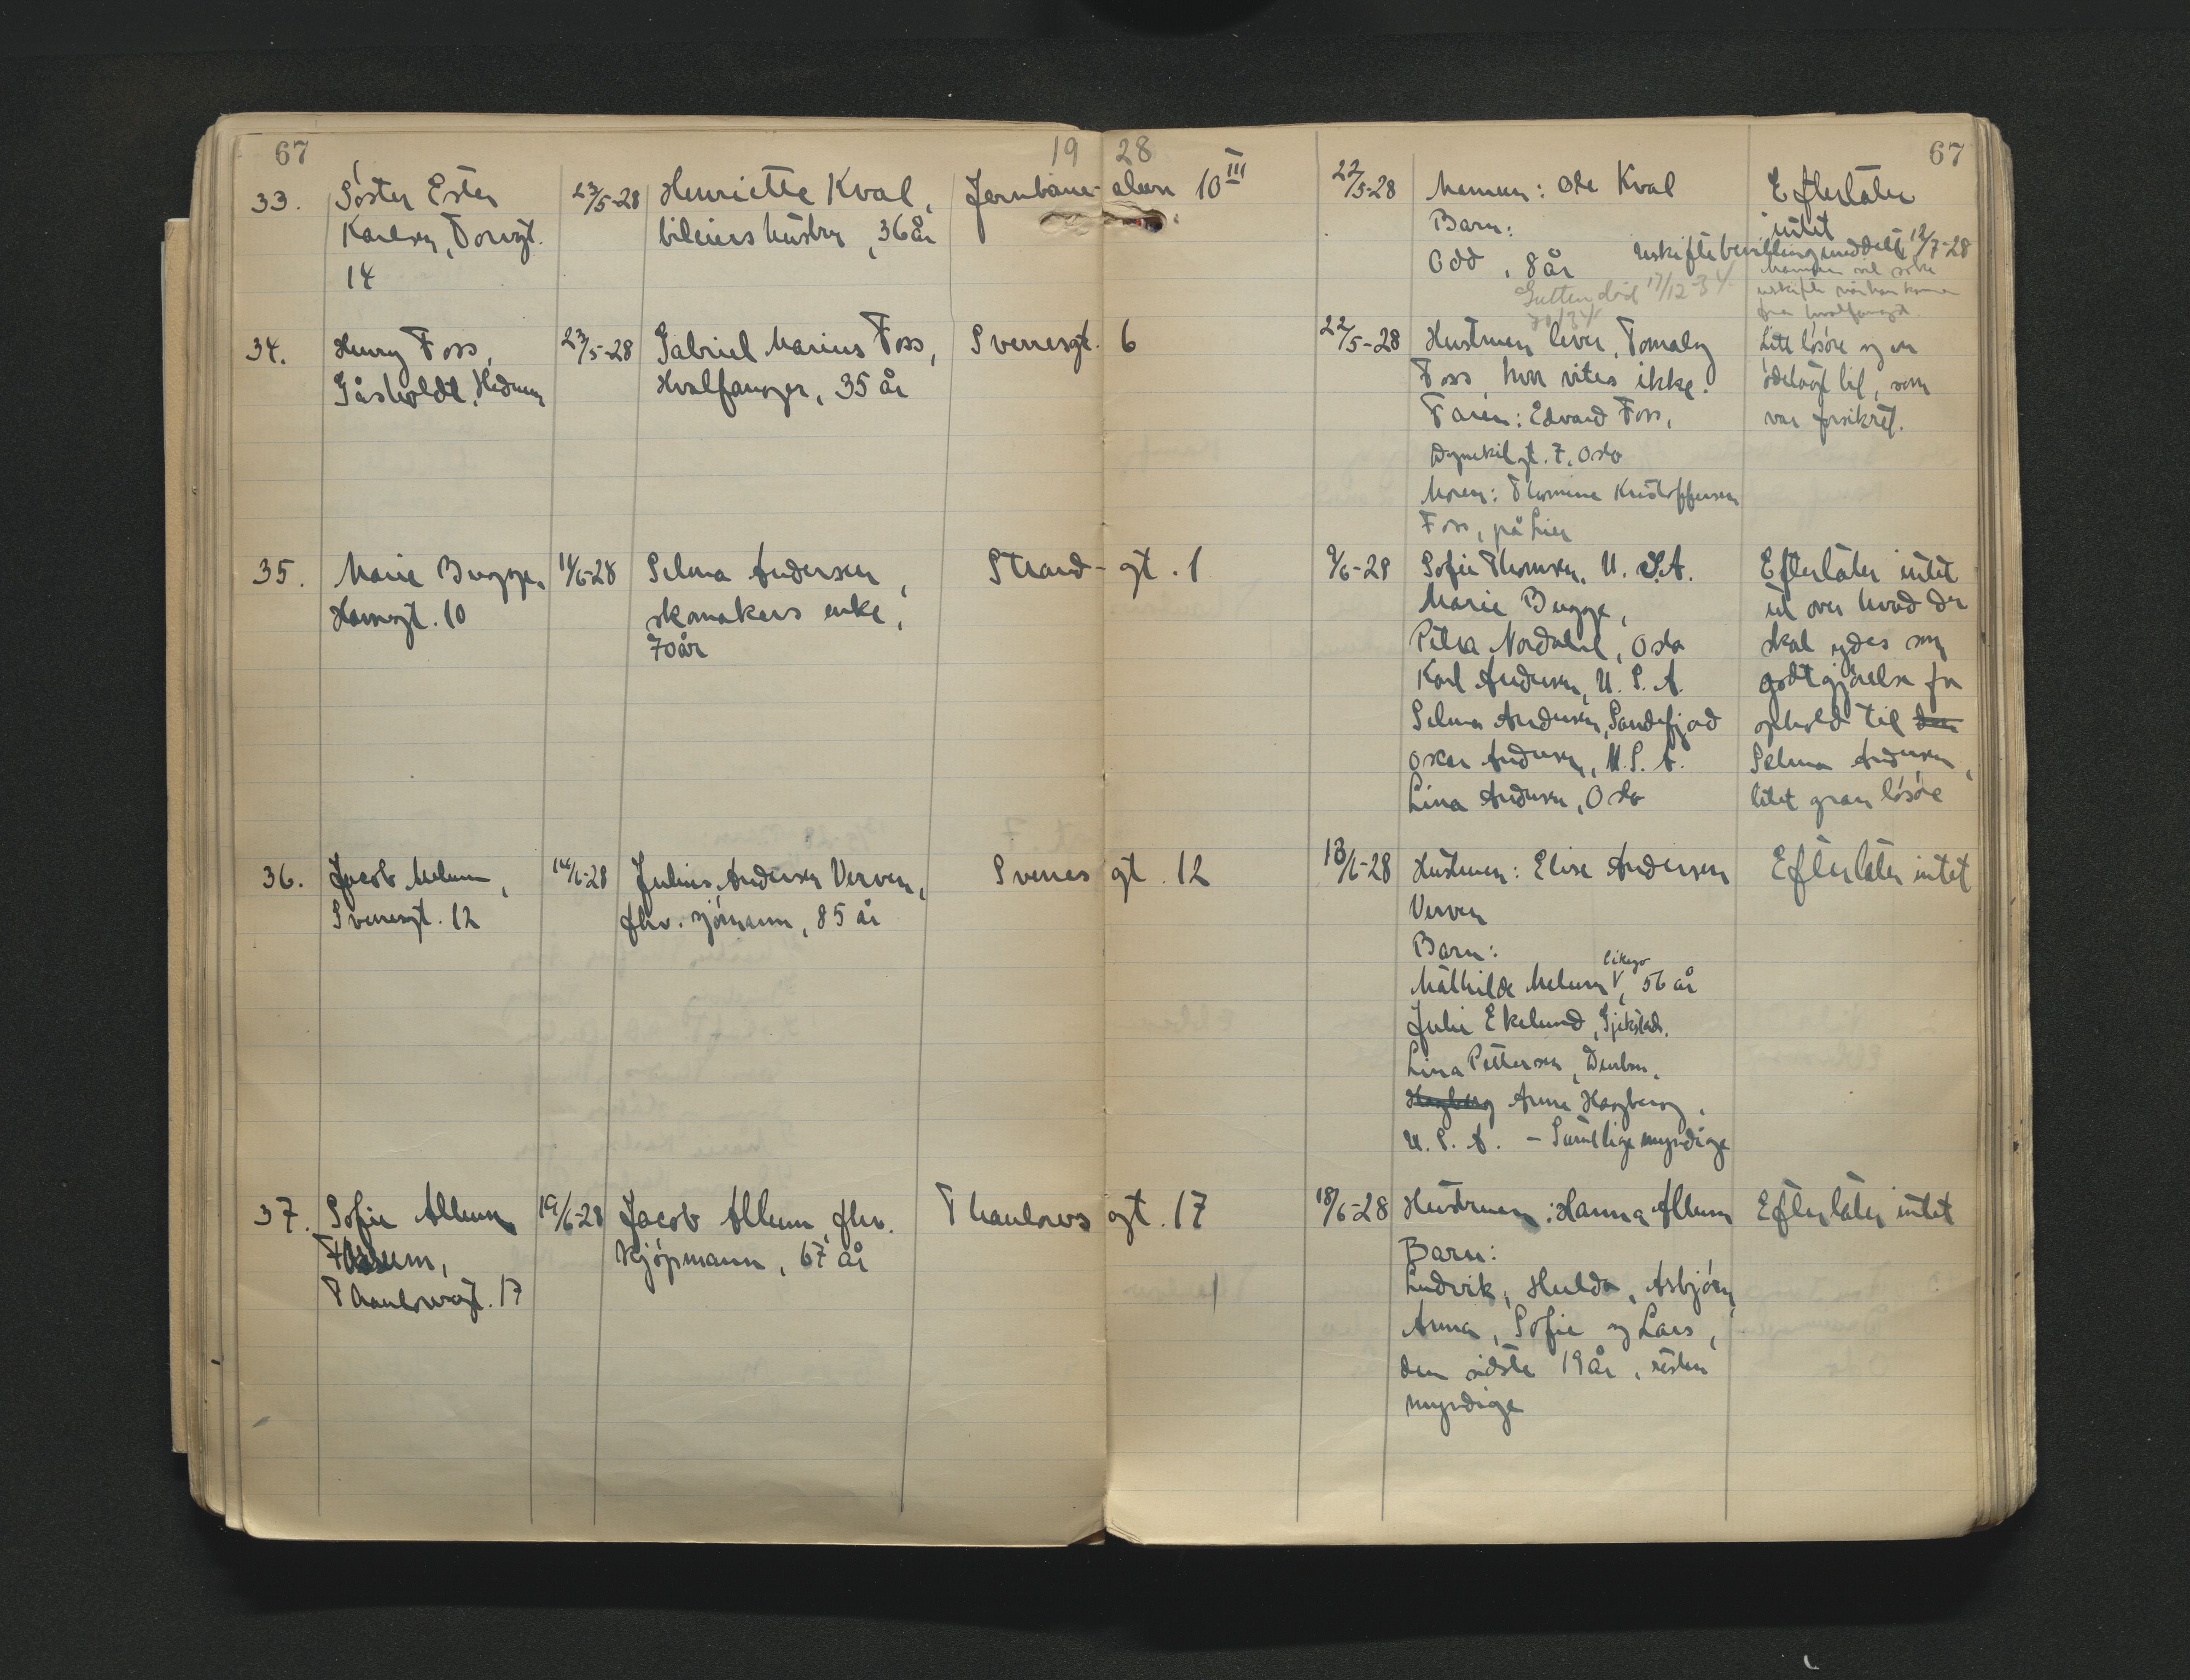 67
19 28
67
33.
Søster Ester
Karlsen, Torvgt.
14
23/5-28
Henriette Kval,
bileiers hustru, 36 år
Jernbane- aleen 10 III
22/5-28
Mannen: Ole Kval
Barn:
Odd, 8 år
Gutten død 17/12-34
Efterlater
intet
Uskiftebevilling meddelt 12/7-28
Mannen vil søke
uskifte når han kommer
fra hvalfangst.
34.
Henry Foss,
Gåsholdt, Hedrum
23/5-28
Gabriel Marius Foss,
Hvalfanger, 35 år
Sverresgt. 6
22/5-28
Hustruen lever, Tomaly
Foss, hvor vites ikke.
Faren: Edvard Foss,
Dynekilgt. 7, Oslo
Moren: Thomine Kristoffersen
Foss, på Lier
Litt løsøre og en
ødelagt bil, som
var forsikret.
35.
Marie Bugge,
Havnegt. 10
11/6-28
Selma Andersen,
skomakers enke,
70 år
Strand- gt. 1
9/6-28
Sofie Thomsen, U. S. A.
Marie Bugge,
Petra Nordahl, Oslo
Karl Andersen, U. S. A.
Selma Andersen, Sandefjord
Oskar Andersen, U. S. A.
Lina Andersen, Oslo
Efterlater intet
ut over hvad der
skal ydes som
godtgjørelse for
ophold til den
Selma Andersen,
litet gran løsøre
36.
Jacob Melum,
Sverresgt. 12
14/6-28
Julius Andersen Verven,
fhv. sjømann, 85 år
Sverres gt. 12
13/6-28
Hustruen: Elise Andersen
Verven
Barn:
likego
Mathilde Melum V, 56 år
Julie Ekelund, Gjekstad.
Lina Pettersen, Durban.
Hagberg Anna Hagberg,
U. S. A. - Samtlige myndige
Efterlater intet
37.
Sofie Allum
Thaulowsgt. 17
19/6-28
Jacob Allum, fhv.
kjøpmann, 67 år
Thaulows gt. 17
18/6-28
Hustruen: Hanna Allum
Barn:
Ludvik, Hulda, Asbjørn,
Anna, Sofie og Lars,
den sidste 19 år, resten
myndige
Efterlater intet